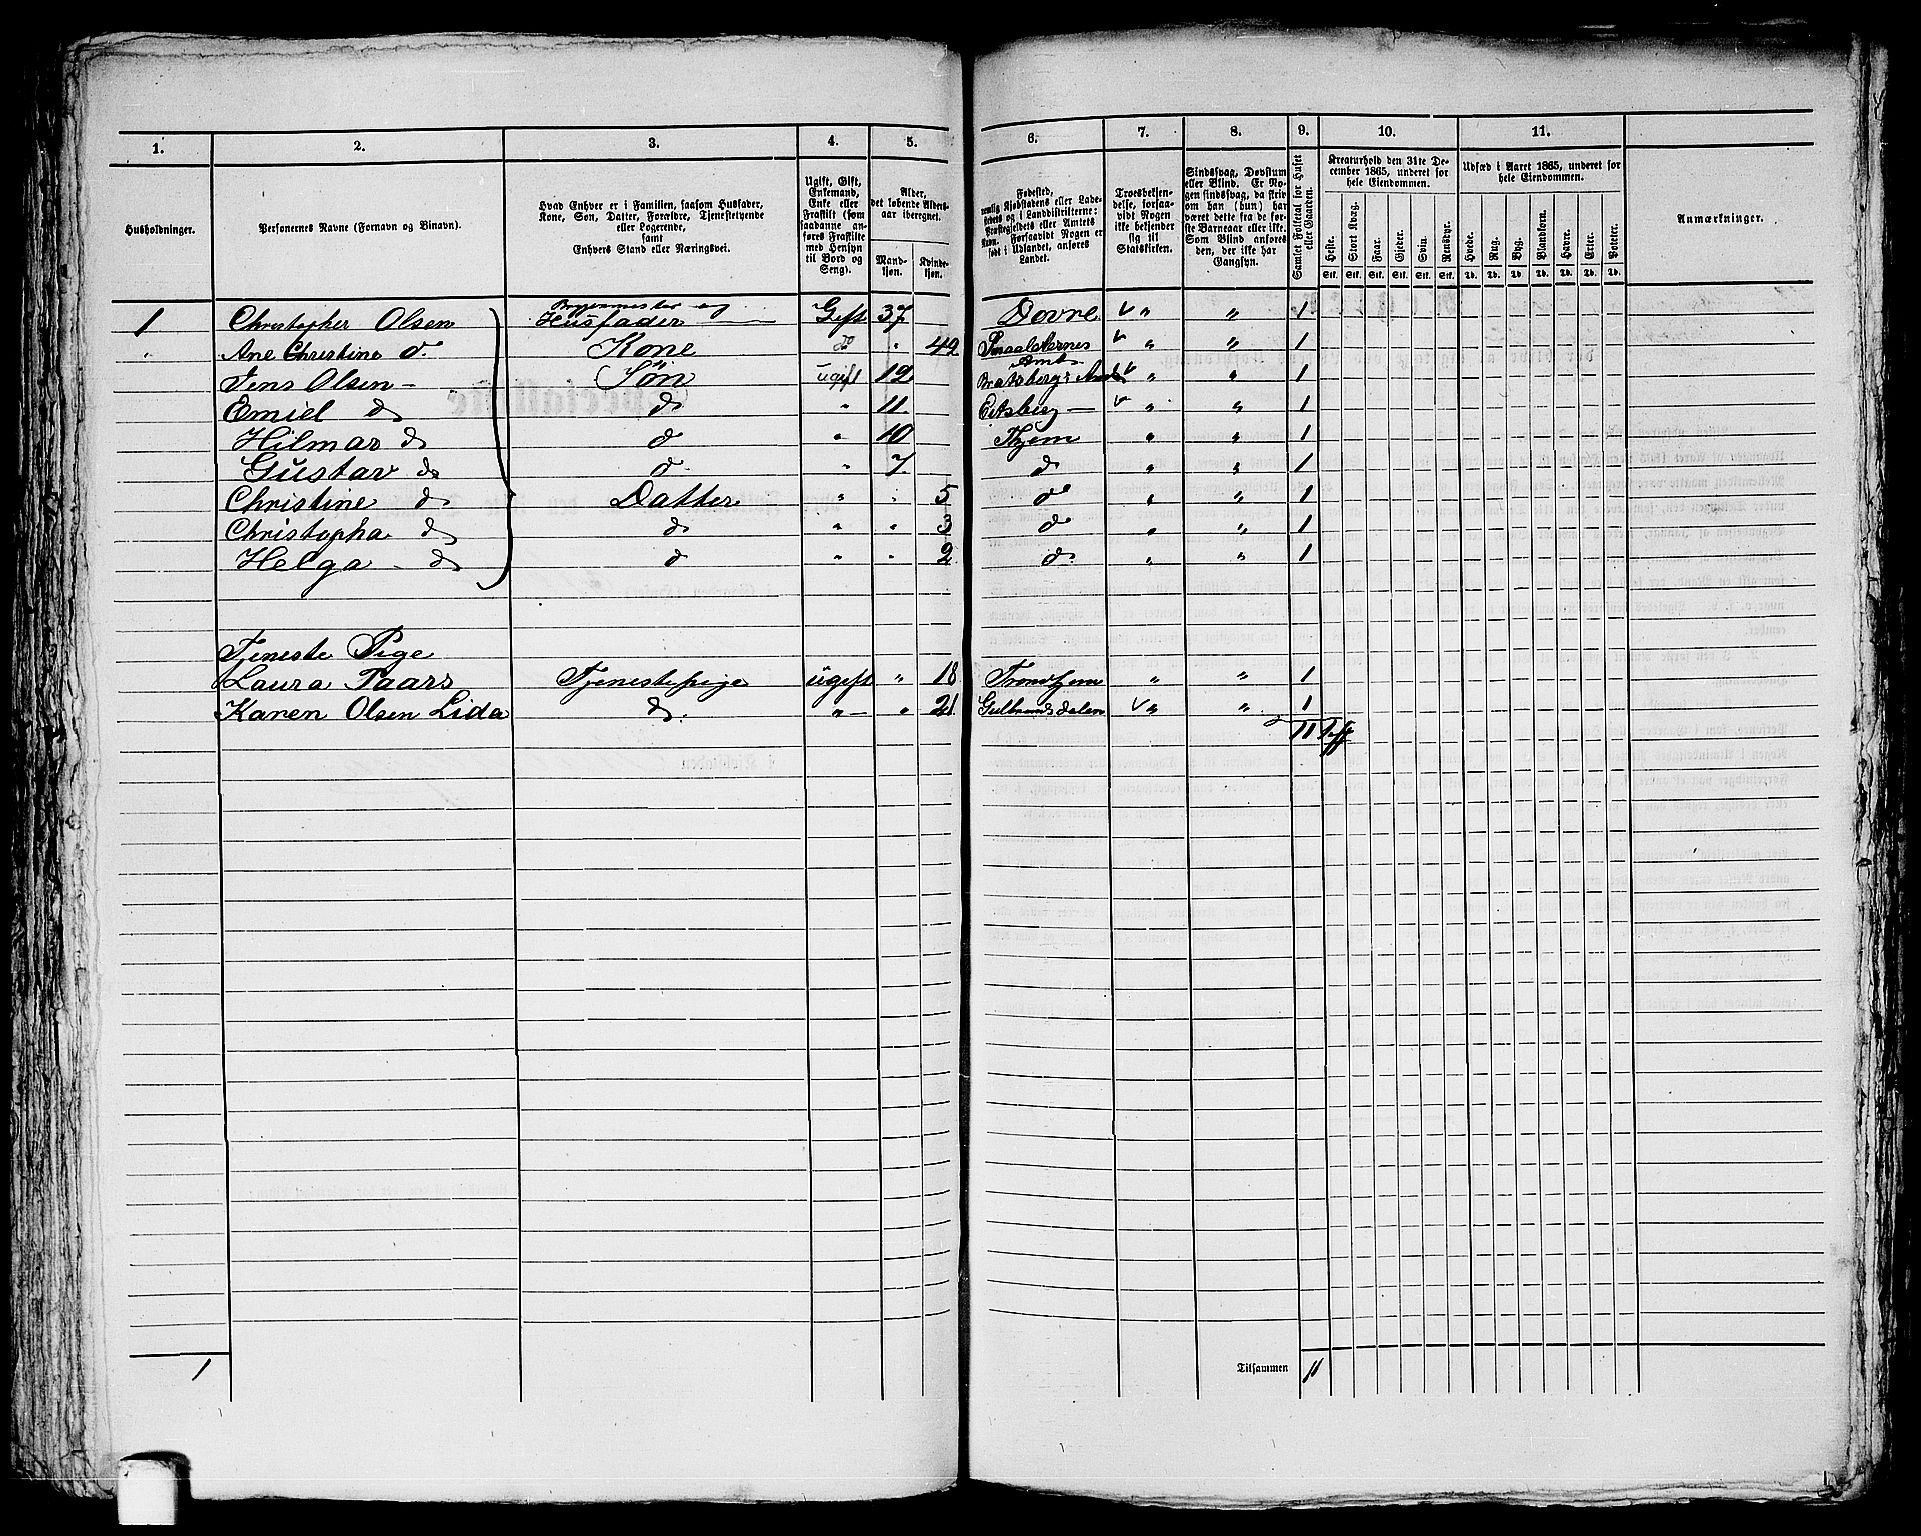 1. 2. 3. 4. 5. 6. 7. 8. 9. 10. 11.
Husholdninger.
Personernes Navne (Fornavn og Binavn).
Hvad Enhver er i Familien, saasom Husfader,
Kone, Søn, Datter, Forældre, Tjenestetyende
eller Logerende,
samt
Enhvers Stand eller Næringsvei.
Ugift, Gift,
Enkemand,
Enke eller
Fraskilt (som
saadanne an-
føres Fraskilte
med Hensyn
til Bord og
Seng).
Alder,
det løbende Alders-
aar iberegnet.
Mand-
kjøn.
Kvinde-
kjøn.
Fødested,
nemlig Kjøbstadens eller Lade-
stedets og i Landdistrikterne:
Præstegjeldets eller Amtets
Navn. Forsaavidt Nogen er
født i Udlandet, anføres
Landet.
Troesbekjen-
delse, forsaa-
vidt Nogen
ikke bekjender
sig til
Statskirken.
Sindssvag, Døvstum
eller Blind. Er No-
gen sindssvag, da skriv
om han (hun) har
været dette fra de før-
ste Barneaar eller ikke.
Som Blind anføres
den, der ikke har
Gangsyn.
Samlet Folketal for Huset
eller Gaarden.
Kreaturhold den 31te De-
cember 1865, underet for
hele Eiendommen.
Heste. Stort Kvæg. Faar. Gjeder. Svin. Rensdyr.
Stk. Stk. Stk. Stk. Stk. Stk.
Udsæd i Aaret 1865, underet for
hele Eiendommen.
Hvede. Rug. Byg. Blandkorn. Havre. Erter. Poteter.
Td. Td. Td. Td. Td. Td. Td.
Anmærkninger.
Bryggemester og
1 Christopher Olsen Husfader Gift 37 Dovre " " 1
" Ane Christine do Kone do " 42 Smaalenenes Amt " " 1
Jens Olsen Søn ugift 12 Bratsbergs Amt " " 1
Emiel do do " 11 Eidsberg " " 1
Hilmar do do " 10 Thjem " " 1
Gustav do do " 7 do " " 1
Christine do Datter " " 5 do " " 1
Christopha do do " " 3 do " " 1
Helga do do " " 2 do " " 1
Tjeneste Pige
Laura Taars Tjenestepige ugift " 18 Trondhjem " " 1
Karen Olsen Lida do. " " 21 Gulbrandsdalen " " 1
11
1 Tilsammen 11